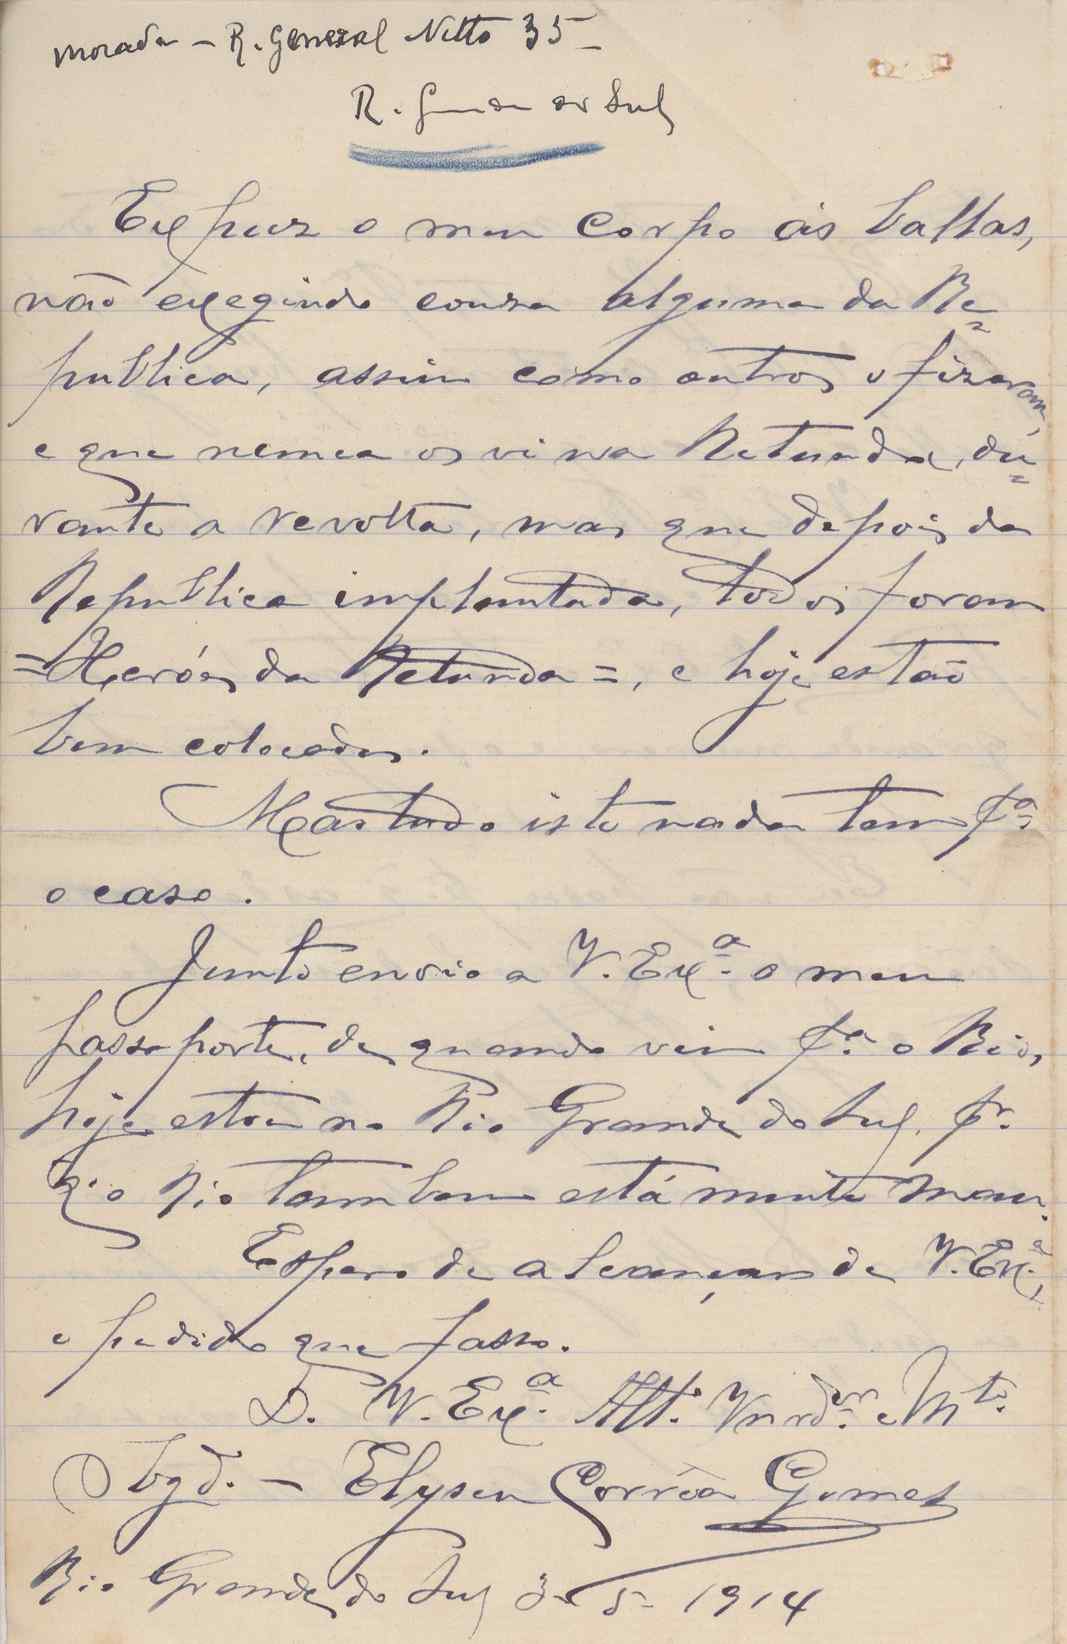 morada - R. General Netto 35 -
R. Grande do Sul
Expuz o meu corpo ás ballas,
não exegindo couza alguma da Re=
publica, assim como outros o fizeram,
e que nunca os vi na Rotunda, du=
rante a revolta, mas que depois da
Republica implantada, todos foram
=Heróes da Rotunda=, e hoje estão
bem colocados.
Mas tudo isto nada tem pª
o caso.
Junto envio a V. Exª. o meu
passaporte, de quando vim pª. o Rio,
hoje estou no Rio Grande do Sul, pr.
q. o Rio tambem está muito mau.
Espero de alcançar de V. Exª,
o pedido que fasso.
D. V. Exª. Att. Vnrdor. e Mto.
Obgd. - Elyseu Corrêa Gomes
Rio Grande do Sul 3-5-1914